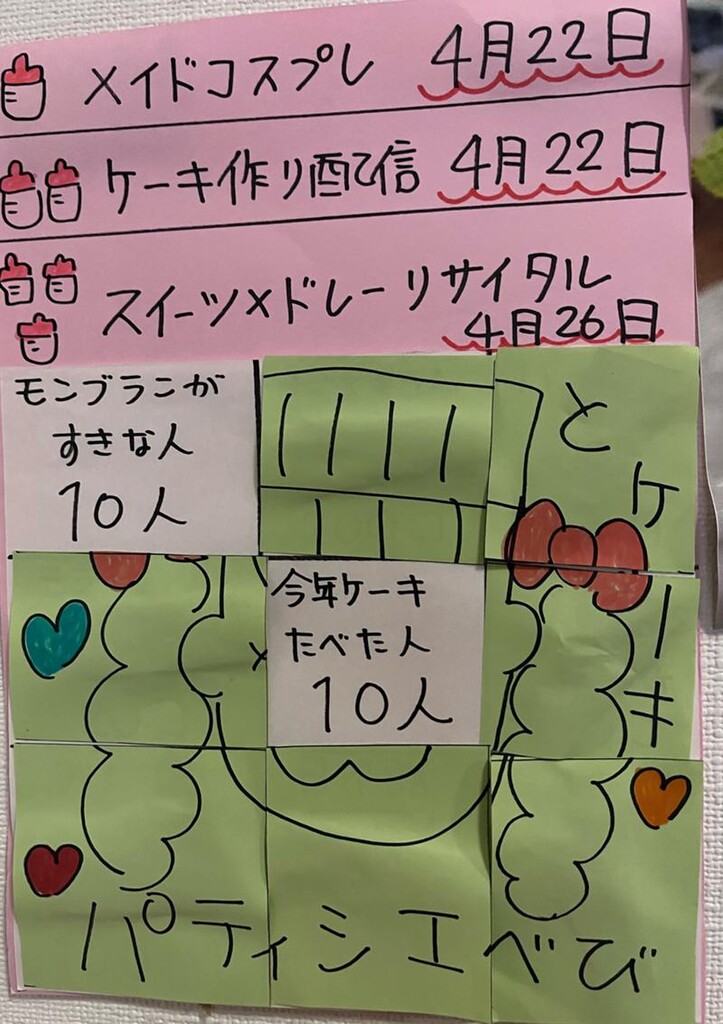 メイドコスプレ 4月22日
ケーキ作り配信 4月22日
スイーツメドレーリサイタル
4月26日
モンブランが
すきな人
10人
とケーキ
今年ケーキ
たべた人
10人
パティシエべび